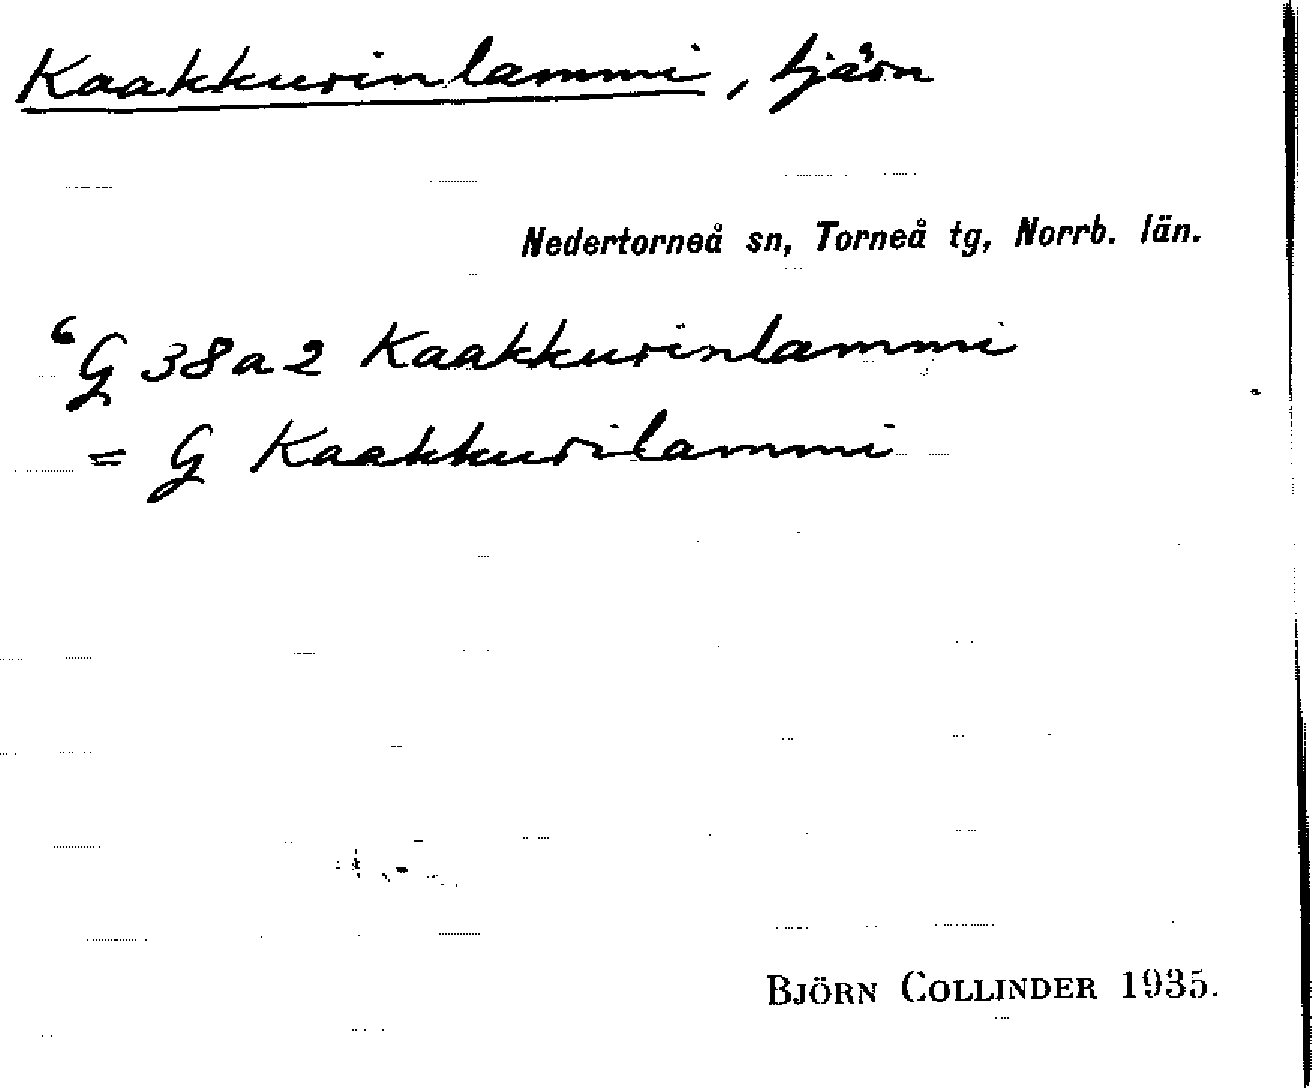 Kaakkurinlammi, tjärn
Nedertorneå sn, Torneå tg, Norrb. län.
“G 38a2 Kaakkurinlammi
= G Kaakkurilammi
BJÖRN COLLINDER 1935.